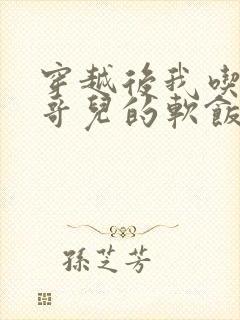 穿越後我喫
哥兒的軟飯
孫芝芳